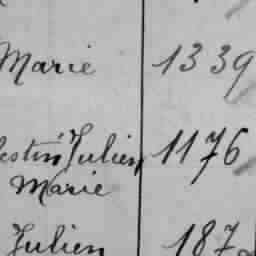 Marie 1339
estin Julien 1176
Marie
Julien 187